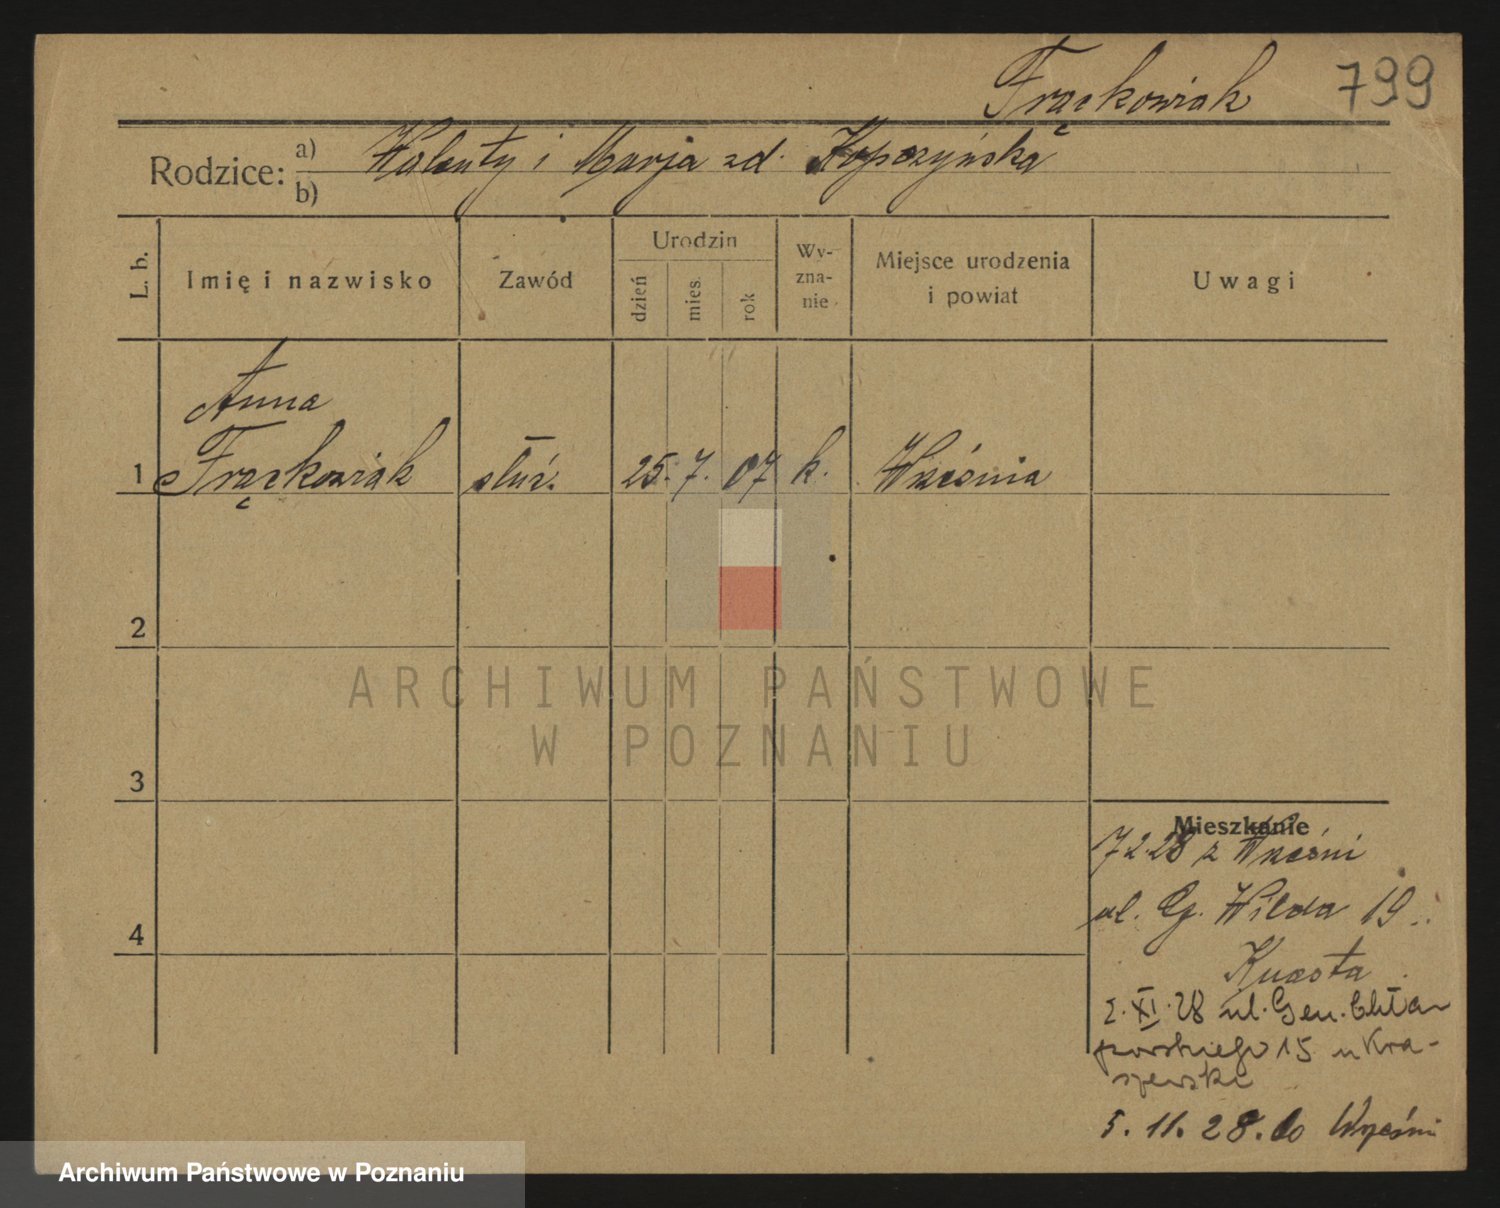 Frąckowiak 799
Rodzice: a) Walenty i Marja zd. Kopczyńska
b)
L. b. Imię i nazwisko Zawód Urodzin dzień mies. rok Wy-zna-nie Miejsce urodzenia i powiat Uwagi
Anna
1 Frąckowiak służ. 25. 7. 07 k. Września
2
3
4
Mieszkanie
17 2 28 z Wześni
ul. Wilda 19
2. XI. 28 ul. Gen. Chła
powskiego 15 u Kra-
szewski
5. 11. 28. do Wrześni
ARCHIWUM PAŃSTWOWE
W POZNANIU
Archiwum Państwowe w Poznaniu